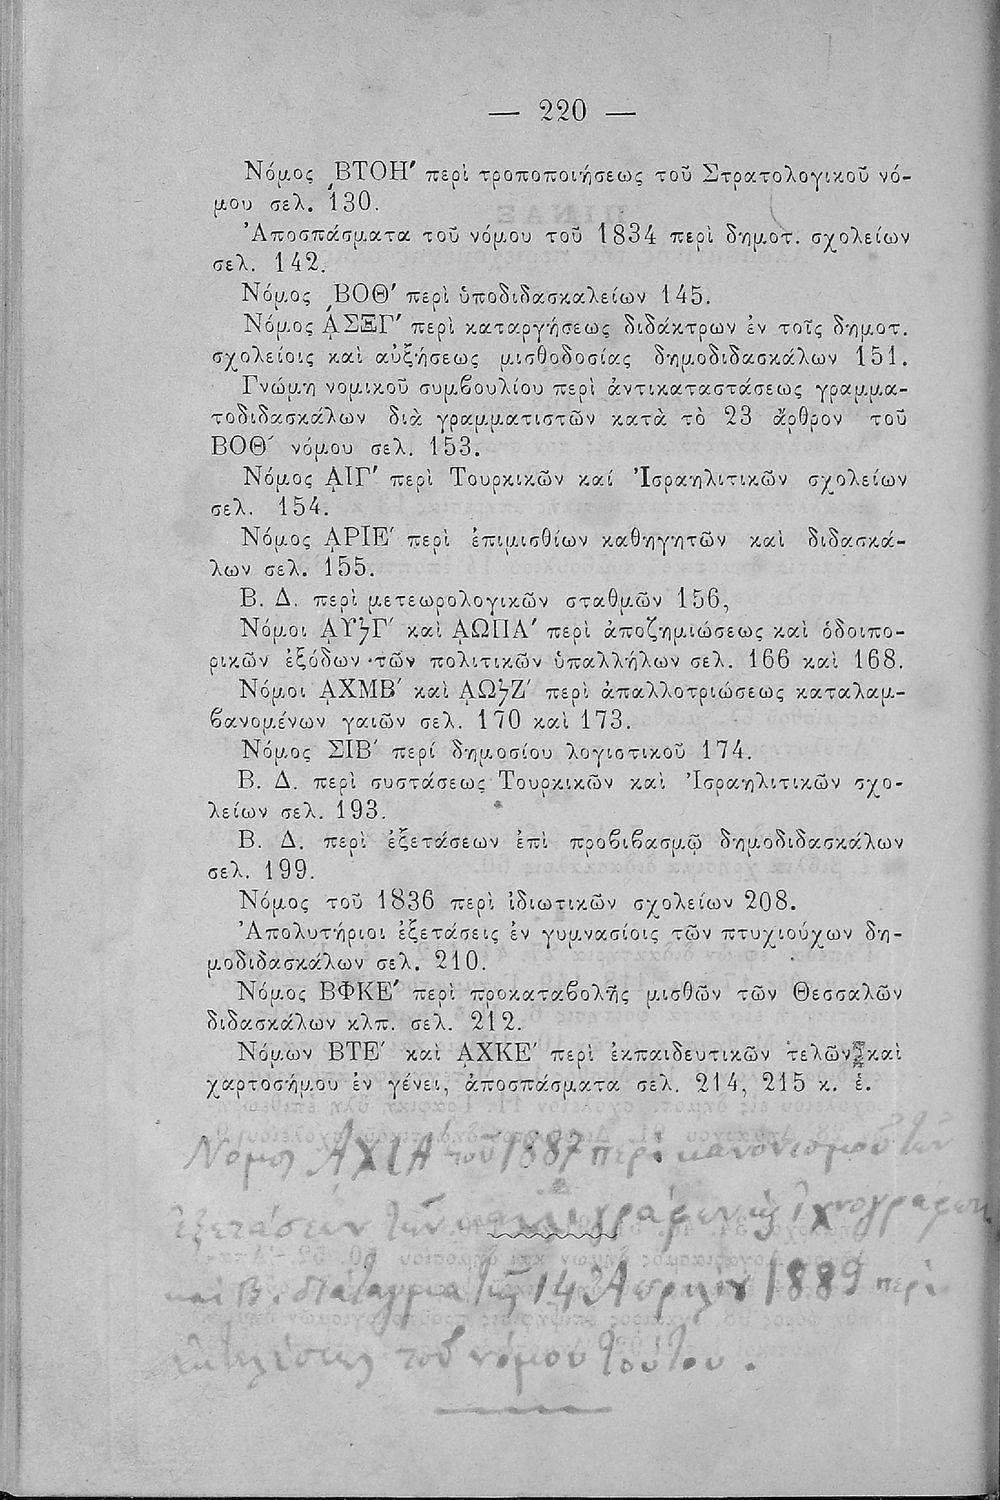 — 220 —
Νόμος ͵ΒΤΟΗʹ περὶ τροποποιήσεως τοῦ Στρατολογικοῦ νό-
μου σελ. 130.
Ἀποσπάσματα τοῦ νόμου τοῦ 1834 περὶ δημοτ. σχολείων
σελ. 142.
Νόμος ͵ΒΟΘʹ περὶ ὑποδιδασκαλείων 145.
Νόμος ͵ΑΣΞΓʹ περὶ καταργήσεως διδάκτρων ἐν τοῖς δημοτ.
σχολείοις καὶ αὐξήσεως μισθοδοσίας δημοδιδασκάλων 151.
Γνώμη νομικοῦ συμβουλίου περὶ ἀντικαταστάσεως γραμμα-
τοδιδασκάλων διὰ γραμματιστῶν κατὰ τὸ 23 ἄρθρον τοῦ
ΒΟΘʹ νόμου σελ. 153.
Νόμος ͵ΑΙΓʹ περὶ Τουρκικῶν καί Ἰσραηλιτικῶν σχολείων
σελ. 154.
Νόμος ͵ΑΡΙΕʹ περὶ ἐπιμισθίων καθηγητῶν καὶ διδασκά-
λων σελ. 155.
Β. Δ. περὶ μετεωρολογικῶν σταθμῶν 156,
Νόμοι ͵ΑΥϟΓʹ καὶ ͵ΑΩΠΑʹ περὶ ἀποζημιώσεως καὶ ὁδοιπο-
ρικῶν ἐξόδων τῶν πολιτικῶν ὑπαλλήλων σελ. 166 καὶ 168.
Νόμοι ͵ΑΧΜΒʹ καὶ ͵ΑΩϟΖʹ περὶ ἀπαλλοτριώσεως καταλαμ-
βανομένων γαιῶν σελ. 170 καὶ 173.
Νόμος ΣΙΒʹ περί δημοσίου λογιστικοῦ 174.
Β. Δ. περὶ συστάσεως Τουρκικῶν καὶ Ἰσραηλιτικῶν σχο-
λείων σελ. 193.
Β. Δ. περὶ ἐξετάσεων ἐπὶ προβιβασμῷ δημοδιδασκάλων
σελ. 199.
Νόμος τοῦ 1836 περὶ ἰδιωτικῶν σχολείων 208.
Ἀπολυτήριοι ἐξετάσεις ἐν γυμνασίοις τῶν πτυχιούχων δη-
μοδιδασκάλων σελ. 210.
Νόμος ΒΦΚΕʹ περὶ προκαταβολῆς μισθῶν τῶν Θεσσαλῶν
διδασκάλων κλπ. σελ. 212.
Νόμων ΒΤΕʹ καὶ ͵ΑΧΚΕʹ περὶ ἐκπαιδευτικῶν τελῶν καὶ
χαρτοσήμου ἐν γένει, ἀποσπάσματα σελ. 214, 215 κ. ἑ.
Νόμος ΑΧΙΑʹ τοῦ 1887 περὶ κανονισμοῦ τῶν
ἐξετάσεων τῶν καλλιγράφων ἰχνογράφων
καὶ Β. Διάταγμα τῆς 14 Ἀπριλίου 1889 περὶ
ἐκτελέσεως τοῦ νόμου τούτου.